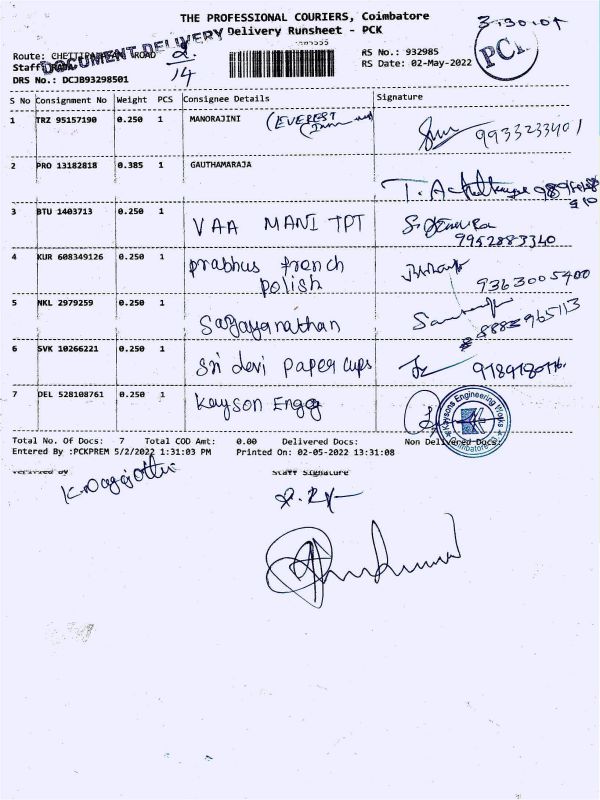 THE PROFESSIONAL COURIERS, Coimbatore
Delivery Runsheet - PCK
3-30.01
DOCUMENT DELIVERY
PCK
Route: ROAD
RS No.: 932985
Staff
2
14
RS Date: 02-May-2022
DRS No.: DCJB93298501
S No Consignment No Weight PCS Consignee Details Signature
1 TRZ 95157190 0.250 1 MANORAJINI (EVEREST 9933233401
2 PRO 13182818 0.385 1 GAUTHAMARAJA
3 BTU 1403713 0.250 1 VAA MANI TPT
9952883340
4 KUR 608349126 0.250 1 prabhus french
polish
9363005400
5 NKL 2979259 0.250 1 Sagayanathan 8883965113
6 SVK 10266221 0.250 1 Sri devi paper cups
7 DEL 528108761 0.250 1 Kayson Engg
Kaysons Engineering Works
Coimbatore
Total No. Of Docs: 7 Total COD Amt: 0.00 Delivered Docs: Non Delivered Docs:
Entered By :PCKPREM 5/2/2022 1:31:03 PM Printed On: 02-05-2022 13:31:08
Verified By Staff Signature